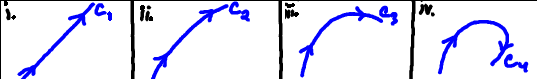 i. C₁ ii. C₂ iii. C₃ iv. C₄